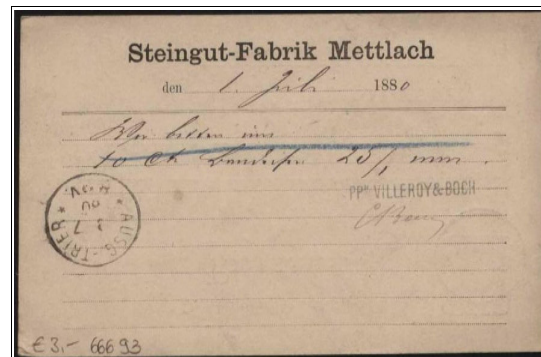 Steingut-Fabrik Mettlach
den 1. Juli 1880
Wir bitten uns
10 Ctr Bandeisen 25/1 mm.
ppª VILLEROY & BOCH
AUSG. TRIER
1 7
80
€ 3,- 66693